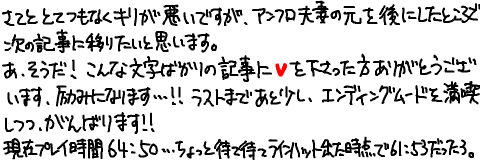 さてととてつもなくキリが悪いですが、アンフロ夫妻の元を後にしたところで
次の記事に移りたいと思います。
あ、そうだ！こんな文字ばかりの記事に♥を下さった方ありがとうござい
います、励みになります…！！ラストまであと少し、エンディングムードを満喫
しつつ、がんばります！！
現在プレイ時間64:50…ちょっと待て待てラインハット出た時点で61:53だったろ。